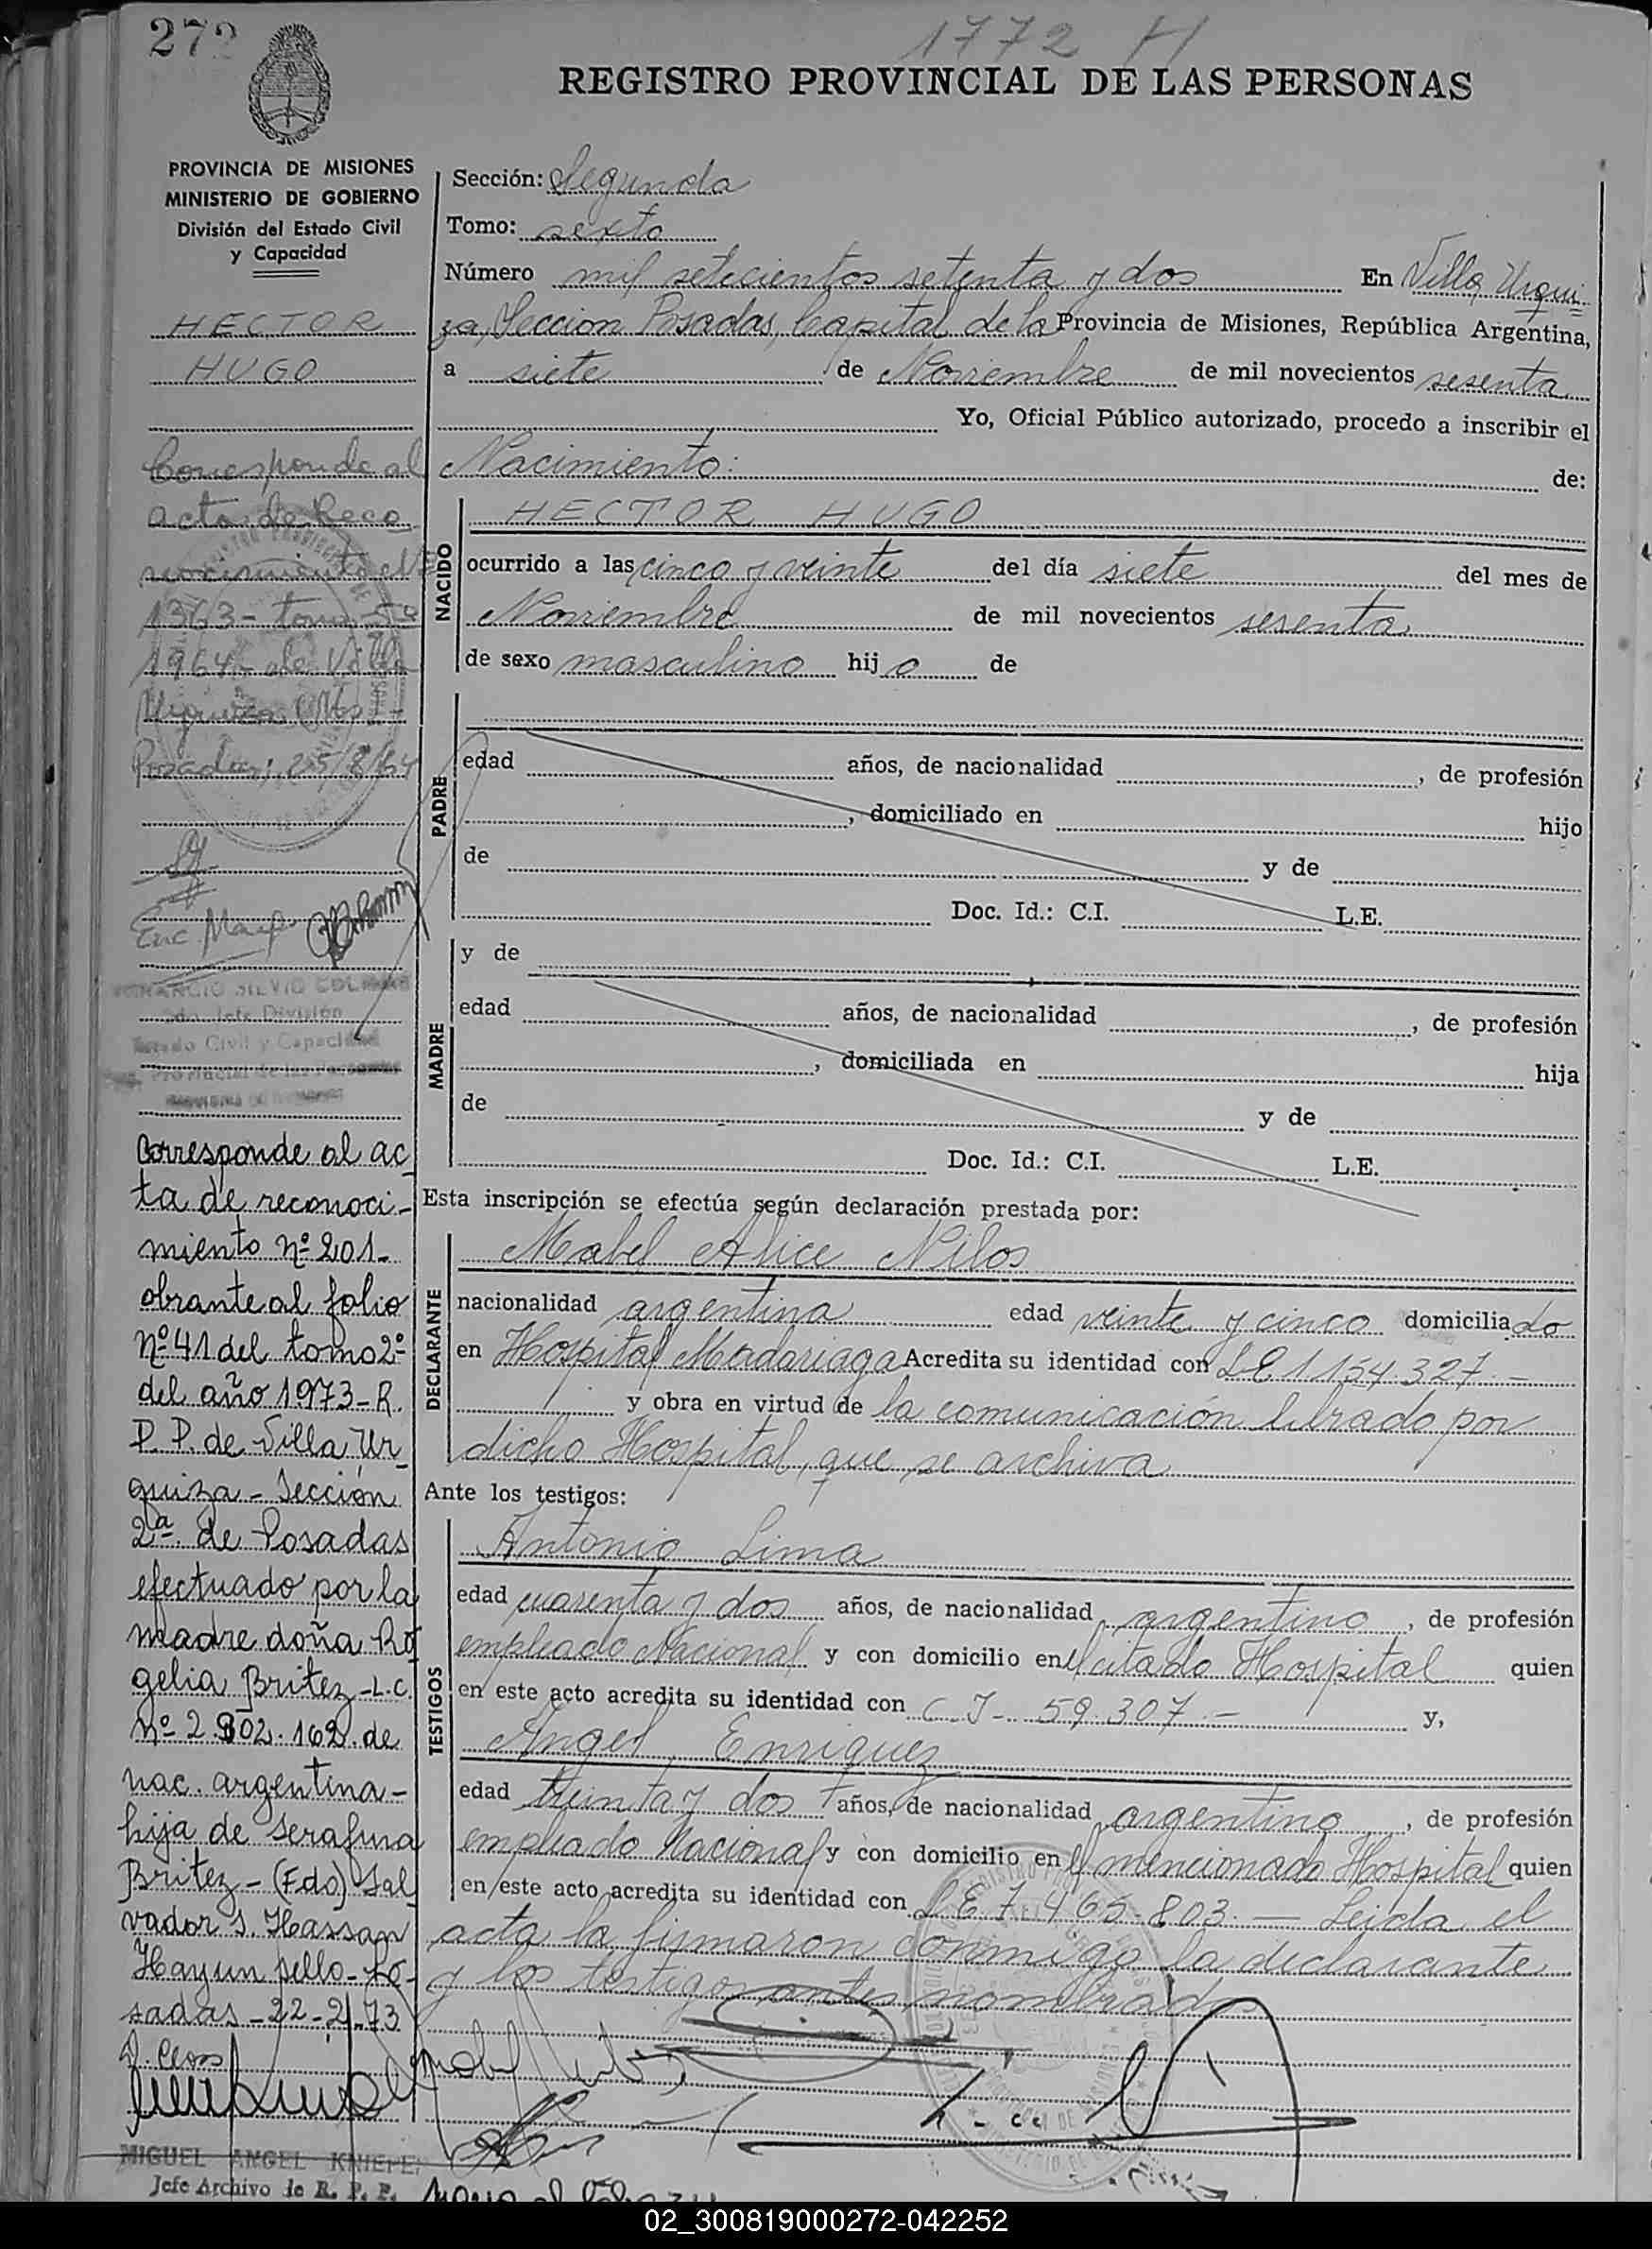 272
1772 H
REGISTRO PROVINCIAL DE LAS PERSONAS
PROVINCIA DE MISIONES
MINISTERIO DE GOBIERNO
División del Estado Civil
y Capacidad
HECTOR
HUGO
Corresponde al
acta de Reco
nocimiento el Nº
1363- tomo 5º
1964- de Villa
Urquiza (Ms)-
Posadas, 25/8/64
Enc.
SILVIO
2do. Jefe División
Estado Civil y Capacidad
Provincial de las Personas
Corresponde al ac
ta de reconoci-
miento nº 201-
obrante al folio
Nº 41 del tomo 2º
del año 1973-R.
P. P. de Villa Ur
quiza - Sección
2ª de Posadas
efectuado por la
madre doña Ro
gelia Britez - L.C.
Nº 2.902.162. de
nac. argentina -
hija de Serafina
Britez - (Fdo) Sal
vador S. Hassan
Hay un sello - Po-
sadas - 22-2-73
MIGUEL ANGEL
Jefe Archivo de R. P. P.
Sección: Segunda
Tomo: sexto
Número mil setecientos setenta y dos En Villa Urqui
za, Seccion Posadas, Capital de la Provincia de Misiones, República Argentina,
a siete de Noviembre de mil novecientos sesenta
Yo, Oficial Público autorizado, procedo a inscribir el
Nacimiento: de:
NACIDO
HECTOR HUGO
ocurrido a las cinco y veinte del día siete del mes de
Noviembre de mil novecientos sesenta
de sexo masculino hijo de
PADRE
edad años, de nacionalidad , de profesión
, domiciliado en hijo
de y de
Doc. Id.: C.I. L.E.
MADRE
y de
edad años, de nacionalidad , de profesión
, domiciliada en hija
de y de
Doc. Id.: C.I. L.E.
Esta inscripción se efectúa según declaración prestada por:
DECLARANTE
Mabel Alice Nilos
nacionalidad argentina edad veinte y cinco domiciliado
en Hospital Madariaga Acredita su identidad con LE 1154.327.-
y obra en virtud de la comunicación librado por
dicho Hospital, que se archiva
Ante los testigos:
TESTIGOS
Antonio Lima
edad cuarenta y dos años, de nacionalidad argentino, de profesión
empleado Nacional y con domicilio en el citado Hospital quien
en este acto acredita su identidad con C.I- 59.307.- y,
Angel Enriquez
edad treinta y dos años, de nacionalidad argentino, de profesión
empleado Nacional y con domicilio en el mencionado Hospital quien
en este acto acredita su identidad con L.E. 7.465.803.- Leida el
acta la firmaron conmigo la declarante
y los testigos antes nombrados
02_300819000272-042252